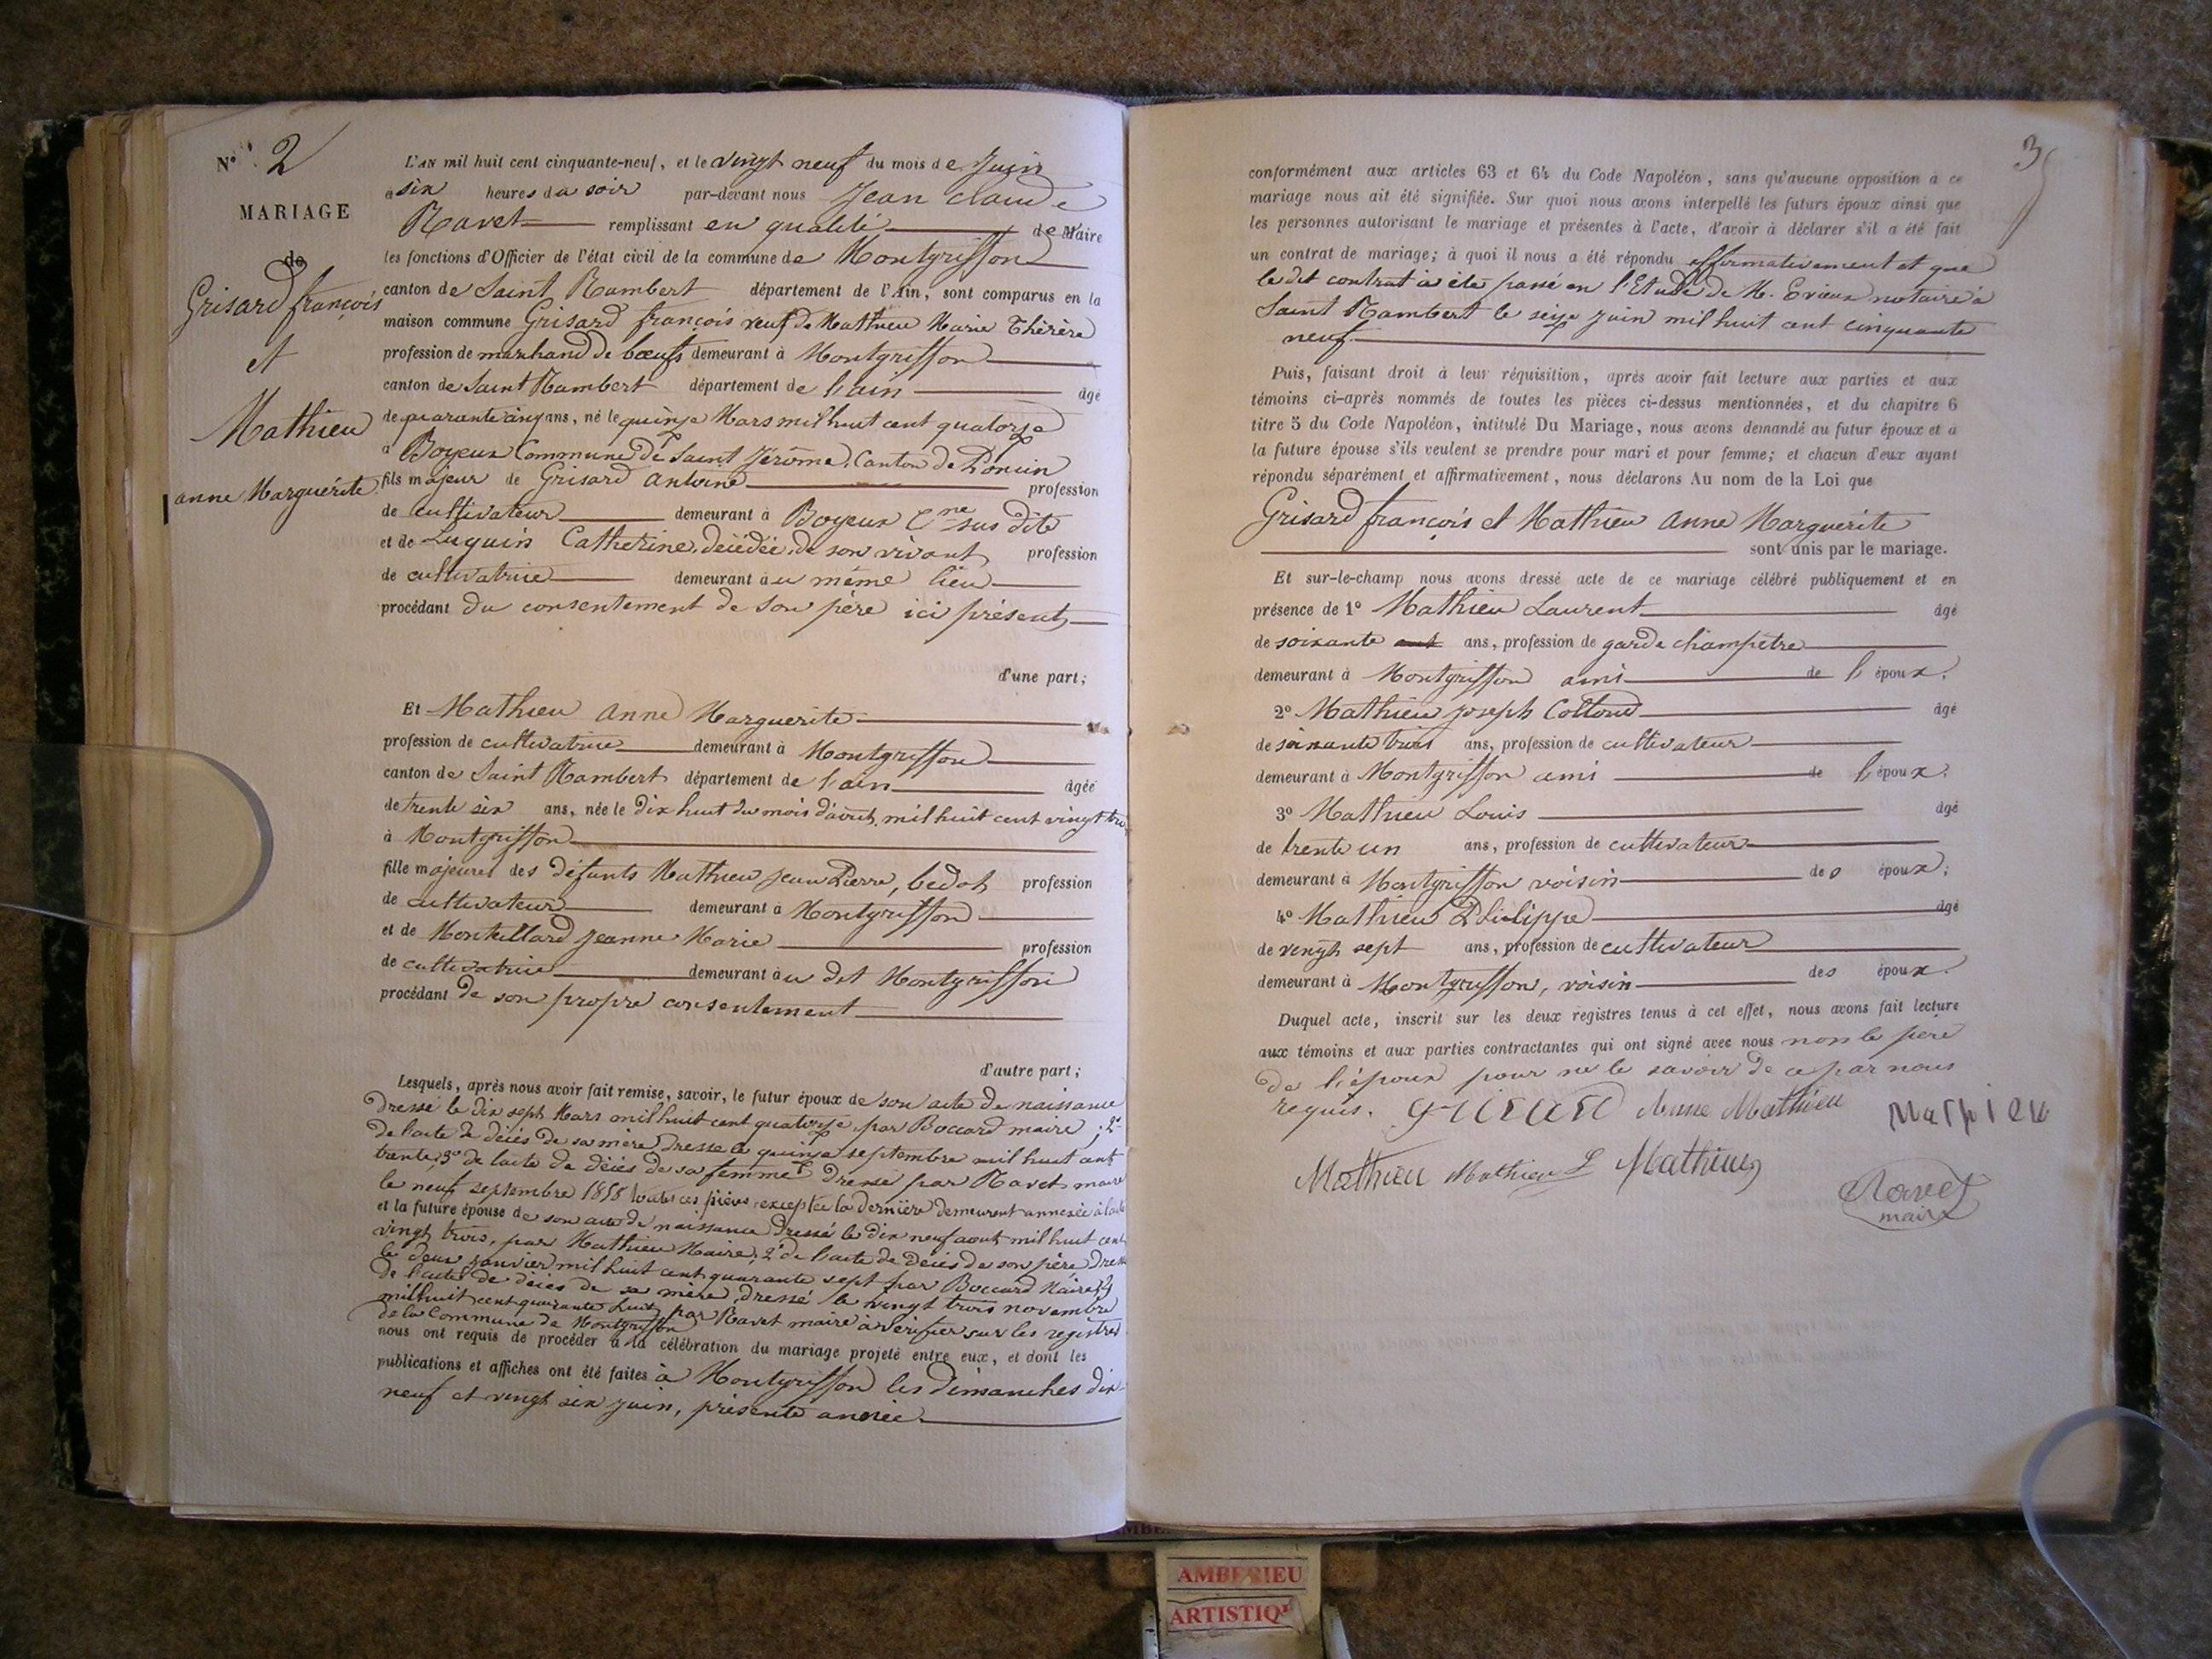 N° 2
MARIAGE
de
Grisard françois
et
Mathieu
anne Marguérite
L'AN mil huit cent cinquante-neuf, et le vingt neuf du mois de Juin
a six heures du soir par-devant nous Jean Claude
Ravet remplissant en qualité de Maire
les fonctions d'Officier de l'état civil de la commune de Montgriffon
canton de Saint Rambert département de l'Ain, sont comparus en la
maison commune Grisard françois veuf de Mathieu Marie Thérèse
profession de marchand de bœufs demeurant à Montgriffon
canton de Saint Rambert département de l'ain âgé
de quarante cinq ans, né le quinze Mars mil huit cent quatorze
a Boyeux Commune de Saint Jérôme, Canton de Poncin
fils majeur de Grisard Antoine profession
de cultivateur demeurant à Boyeux Cne sus dite
et de Luquin Catherine, décédée, de son vivant profession
de cultivatrice demeurant au même lieu
procédant du consentement de son père ici présent
d'une part;
Et Mathieu anne Marguerite
profession de cultivatrice demeurant à Montgriffon
canton de Saint Rambert département de l'ain âgée
de trente six ans, née le dix huit du mois d'août mil huit cent vingt
à Montgriffon
fille majeure des défunts Mathieu Jean Pierre, bedot profession
de cultivateur demeurant à Montgriffon
et de Montillard Jeanne Marie profession
de cultivatrice demeurant au dit Montgriffon
procédant de son propre consentement
d'autre part;
Lesquels, après nous avoir fait remise, savoir, le futur époux de son acte de naissance
dressé le dix sept Mars mil huit cent quatorze par Boccard maire; 2°
de l'acte de décès de sa mère, dressé le quinze septembre mil huit cent
trente, 3° de l'acte de décès de sa femme dressé par Ravet maire
le neuf septembre 1858 toutes ces pièces exceptée la dernière demeurent annexée à
et la future épouse de son acte de naissance dressé le dix neuf aout mil huit cent
vingt trois, par Mathieu Maire, 2° de l'acte de décès de son père dressé
le janvier mil huit cent quarante sept par Boccard Maire
de l'acte de décès de sa mère, dressé le vingt trois novembre
mil huit cent quarante huit par Ravet maire à vérifier sur les registres
de la Commune de Montgriffon
nous ont requis de procéder à la célébration du mariage projeté entre eux, et dont les
publications et affiches ont été faites à Montgriffon les dimanches dix
neuf et vingt six juin, présente année
3
conformément aux articles 63 et 64 du Code Napoléon, sans qu'aucune opposition à ce
mariage nous ait été signifiée. Sur quoi nous avons interpellé les futurs époux ainsi que
les personnes autorisant le mariage et présentes à l'acte, d'avoir à déclarer s'il a été fait
un contrat de mariage; à quoi il nous a été répondu affirmativement et que
le dit contrat à été passé en l'Etude de M. notaire à
Saint Rambert le seize juin mil huit cent cinquante
neuf.
Puis, faisant droit à leur réquisition, après avoir fait lecture aux parties et aux
témoins ci-après nommés de toutes les pièces ci-dessus mentionnées, et du chapitre 6
titre 5 du Code Napoléon, intitulé Du Mariage, nous avons demandé au futur époux et à
la future épouse s'ils veulent se prendre pour mari et pour femme; et chacun d'eux ayant
répondu séparément et affirmativement, nous déclarons Au nom de la Loi que
Grisard françois et Mathieu Anne Marguerite
sont unis par le mariage.
Et sur-le-champ nous avons dressé acte de ce mariage célébré publiquement et en
présence de 1° Mathieu Laurent âgé
de soixante ans, profession de garde champêtre
demeurant à Montgriffon ami de l'époux.
2° Mathieu joseph Cottond âgé
de soixante trois ans, profession de cultivateur
demeurant à Montgriffon ami de l'époux.
3° Mathieu Louis âgé
de trente un ans, profession de cultivateur
demeurant à Montgriffon voisin des époux;
4° Mathieu Philippe âgé
de vingt sept ans, profession de cultivateur
demeurant à Montgriffon, voisin des époux.
Duquel acte, inscrit sur les deux registres tenus à cet effet, nous avons fait lecture
aux témoins et aux parties contractantes qui ont signé avec nous non le père
de l'époux pour ne le savoir de ce par nous
requis. Anne Mathieu
Mathieu Mathieu L Mathieu
Ravet
maire
AMBERIEU
ARTISTIQ